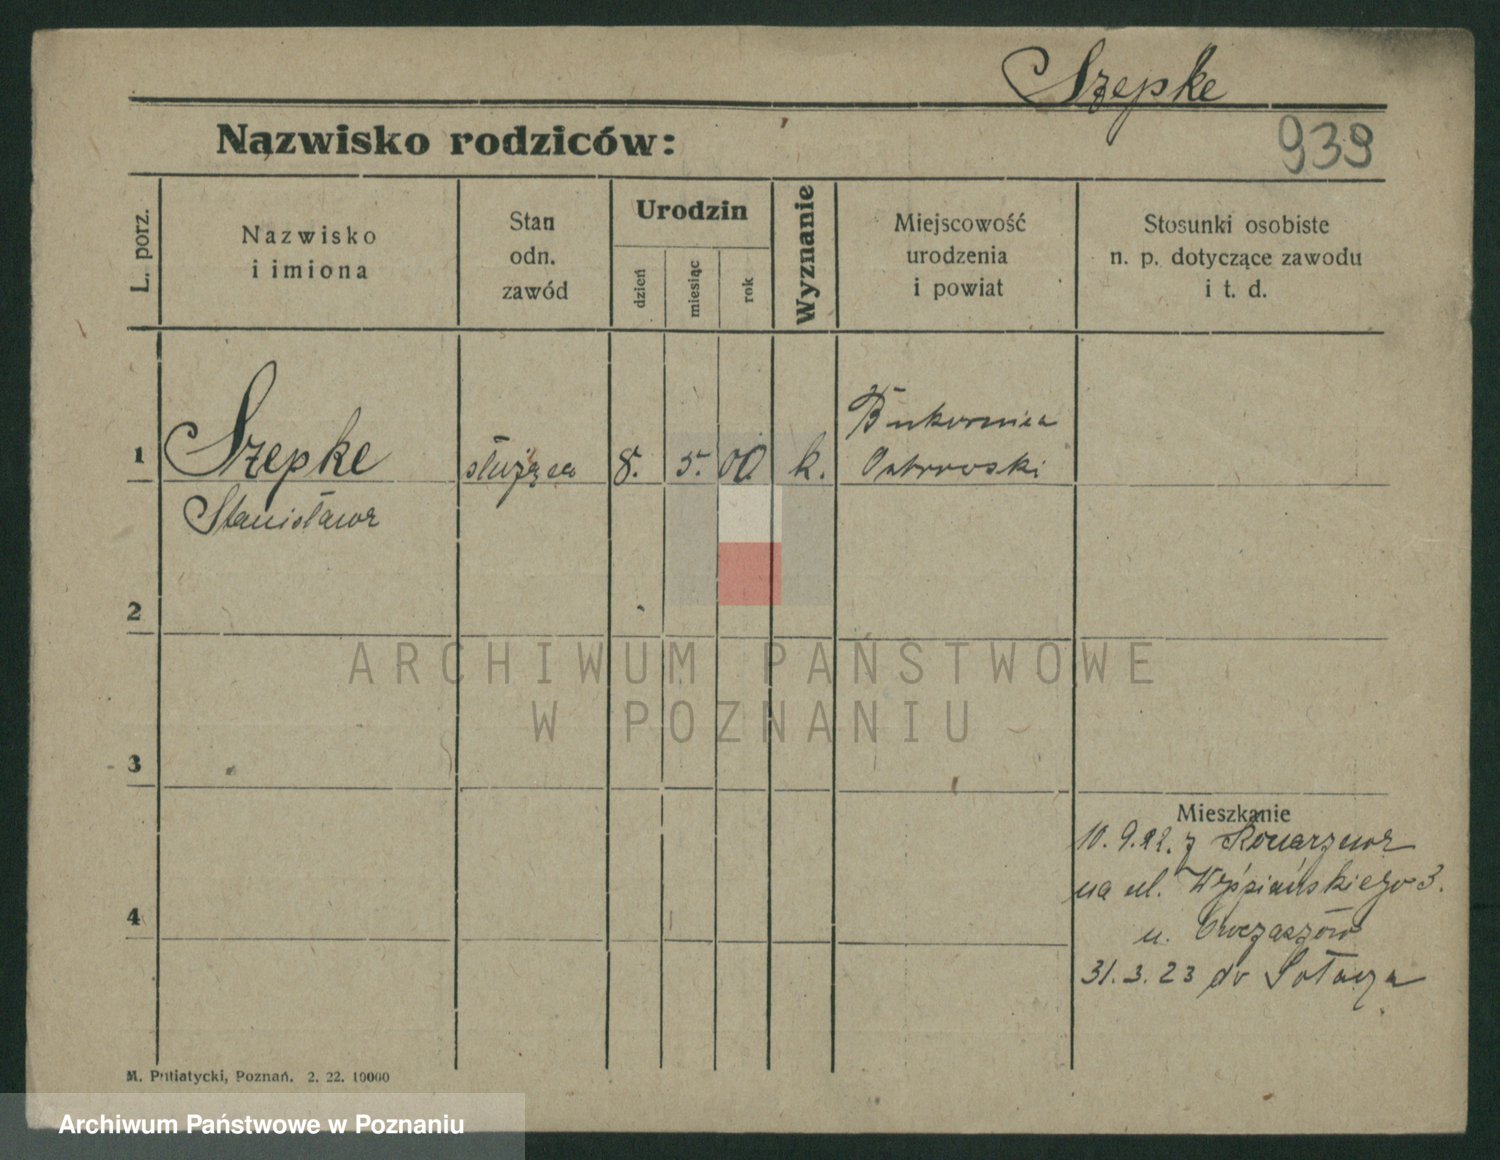 Szepke
Nazwisko rodziców:
939
L. porz.
Nazwisko
i imiona
Stan
odn.
zawód
Urodzin
dzień
miesiąc
rok
Wyznanie
Miejscowość
urodzenia
i powiat
Stosunki osobiste
n. p. dotyczące zawodu
i t. d.
Bukownica
1 Szepke służąca 8. 5. 00 k. Ostrowski
Stanisława
2
ARCHIWUM PAŃSTWOWE
W POZNANIU
3
Mieszkanie
10. 9. 22. z
na ul. Wyspiańskiego 3.
4
u.
31. 3. 23 do Sołacza
M. Putiatycki, Poznań. 2. 22. 10000
Archiwum Państwowe w Poznaniu